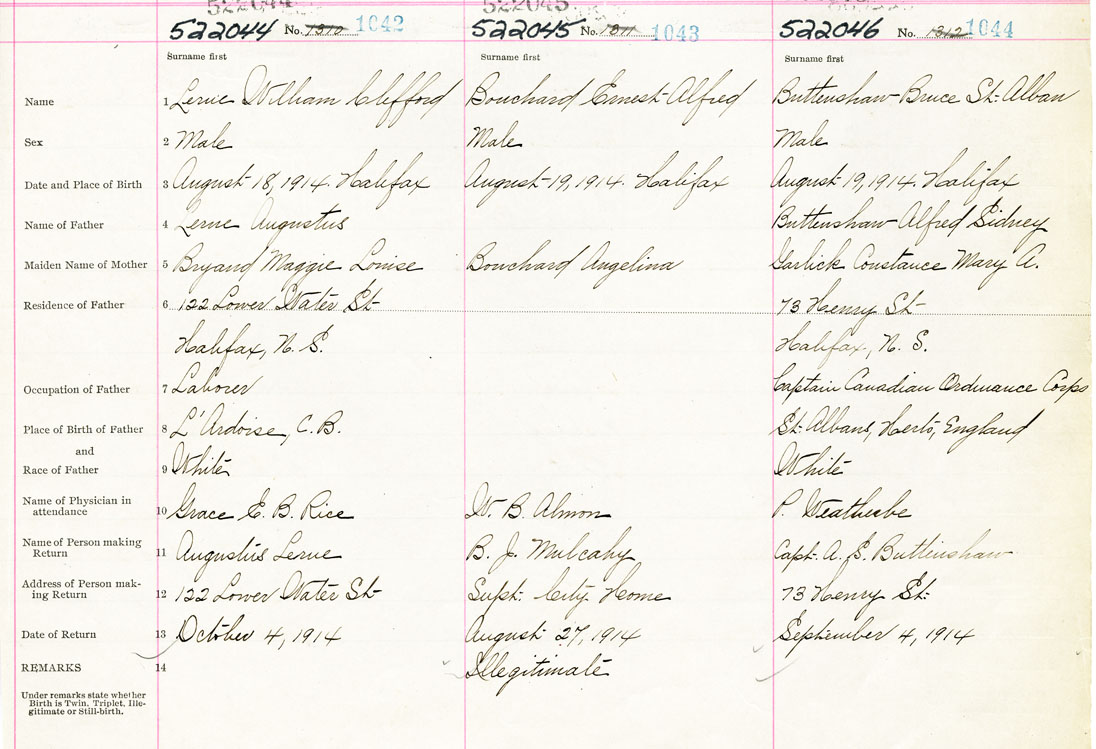 522044 No. 1310 1042 522045 No. 1311 1043 522046 No. 1312 1044
Surname first Surname first Surname first
Name 1 Lerue William Clifford Bouchard Ernest Alfred Buttenshaw Bruce St. Alban
Sex 2 Male Male Male
Date and Place of Birth 3 August 18, 1914. Halifax August 19, 1914. Halifax August 19, 1914. Halifax
Name of Father 4 Lerue Augustus Buttenshaw Alfred Sidney
Maiden Name of Mother 5 Bryand Maggie Louise Bouchard Angelina Garlick Constance Mary A.
Residence of Father 6 122 Lower Water St 73 Henry St
Halifax, N. S. Halifax, N. S.
Occupation of Father 7 Laborer Captain Canadian Ordnance Corps
Place of Birth of Father 8 L'Ardoise, C.B. St. Albans, Herts, England
and
Race of Father 9 White White
Name of Physician in
attendance 10 Grace E. B. Rice W. B. Almon P. Weatherbe
Name of Person making
Return 11 Augustus Lerue B. J. Mulcahy Capt. A. S. Buttenshaw
Address of Person mak-
ing Return 12 122 Lower Water St Supt. City Home 73 Henry St.
Date of Return 13 October 4, 1914 August 27, 1914 September 4, 1914
REMARKS 14 Illegitimate
Under remarks state whether
Birth is Twin, Triplet, Ille-
gitimate or Still-birth.